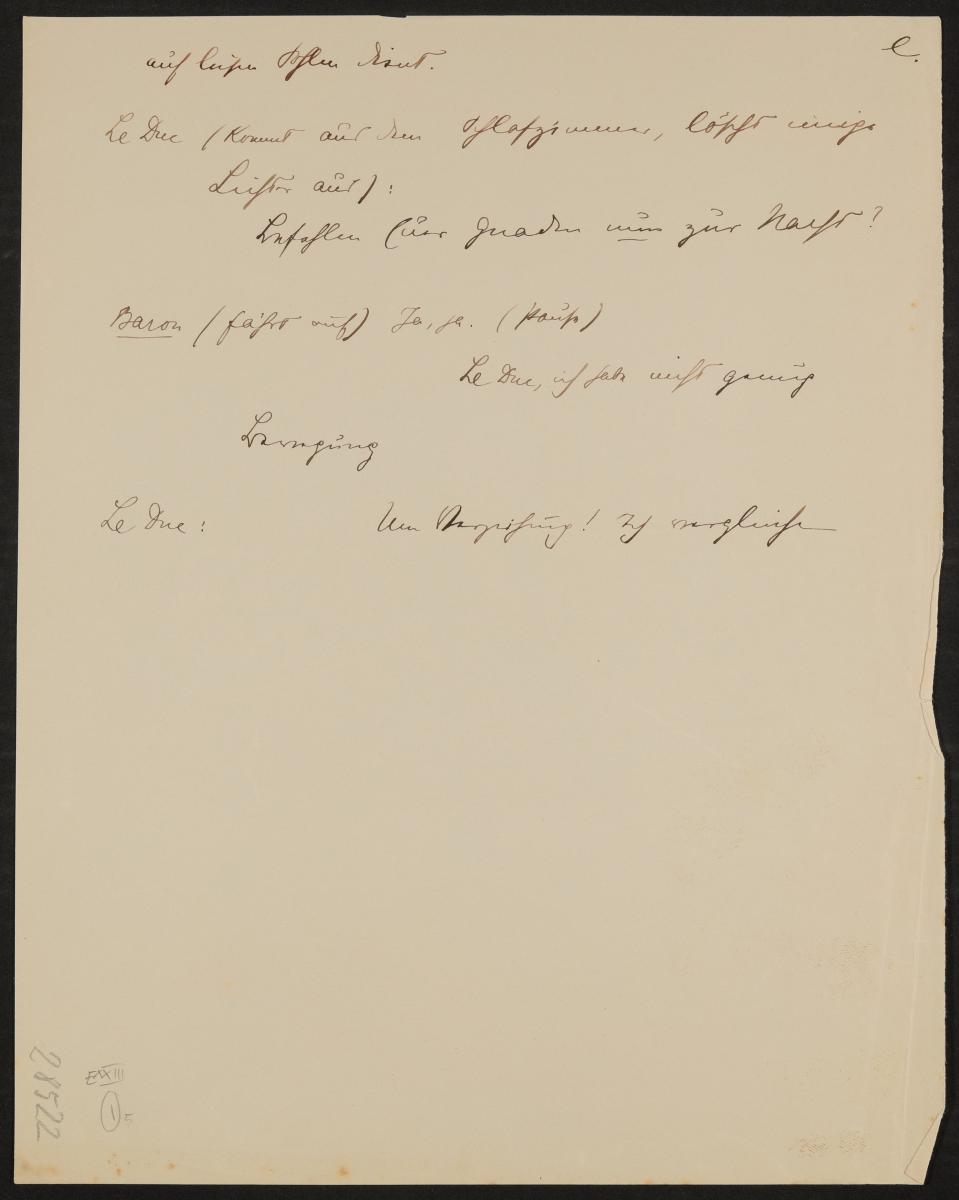 e.
auf leisen Sohlen dient.
Le Duc (kommt aus dem Schlafzimmer, löscht einige
Lichter aus):
Befehlen Euer Gnaden nun zur Nacht?
Baron (fährt auf) Ja, ja. (Pause)
Le Duc, ich habe nicht genug
Bewegung
Le Duc: Um Verzeihung! Ich vergleiche
28522
EXXIII
I 5